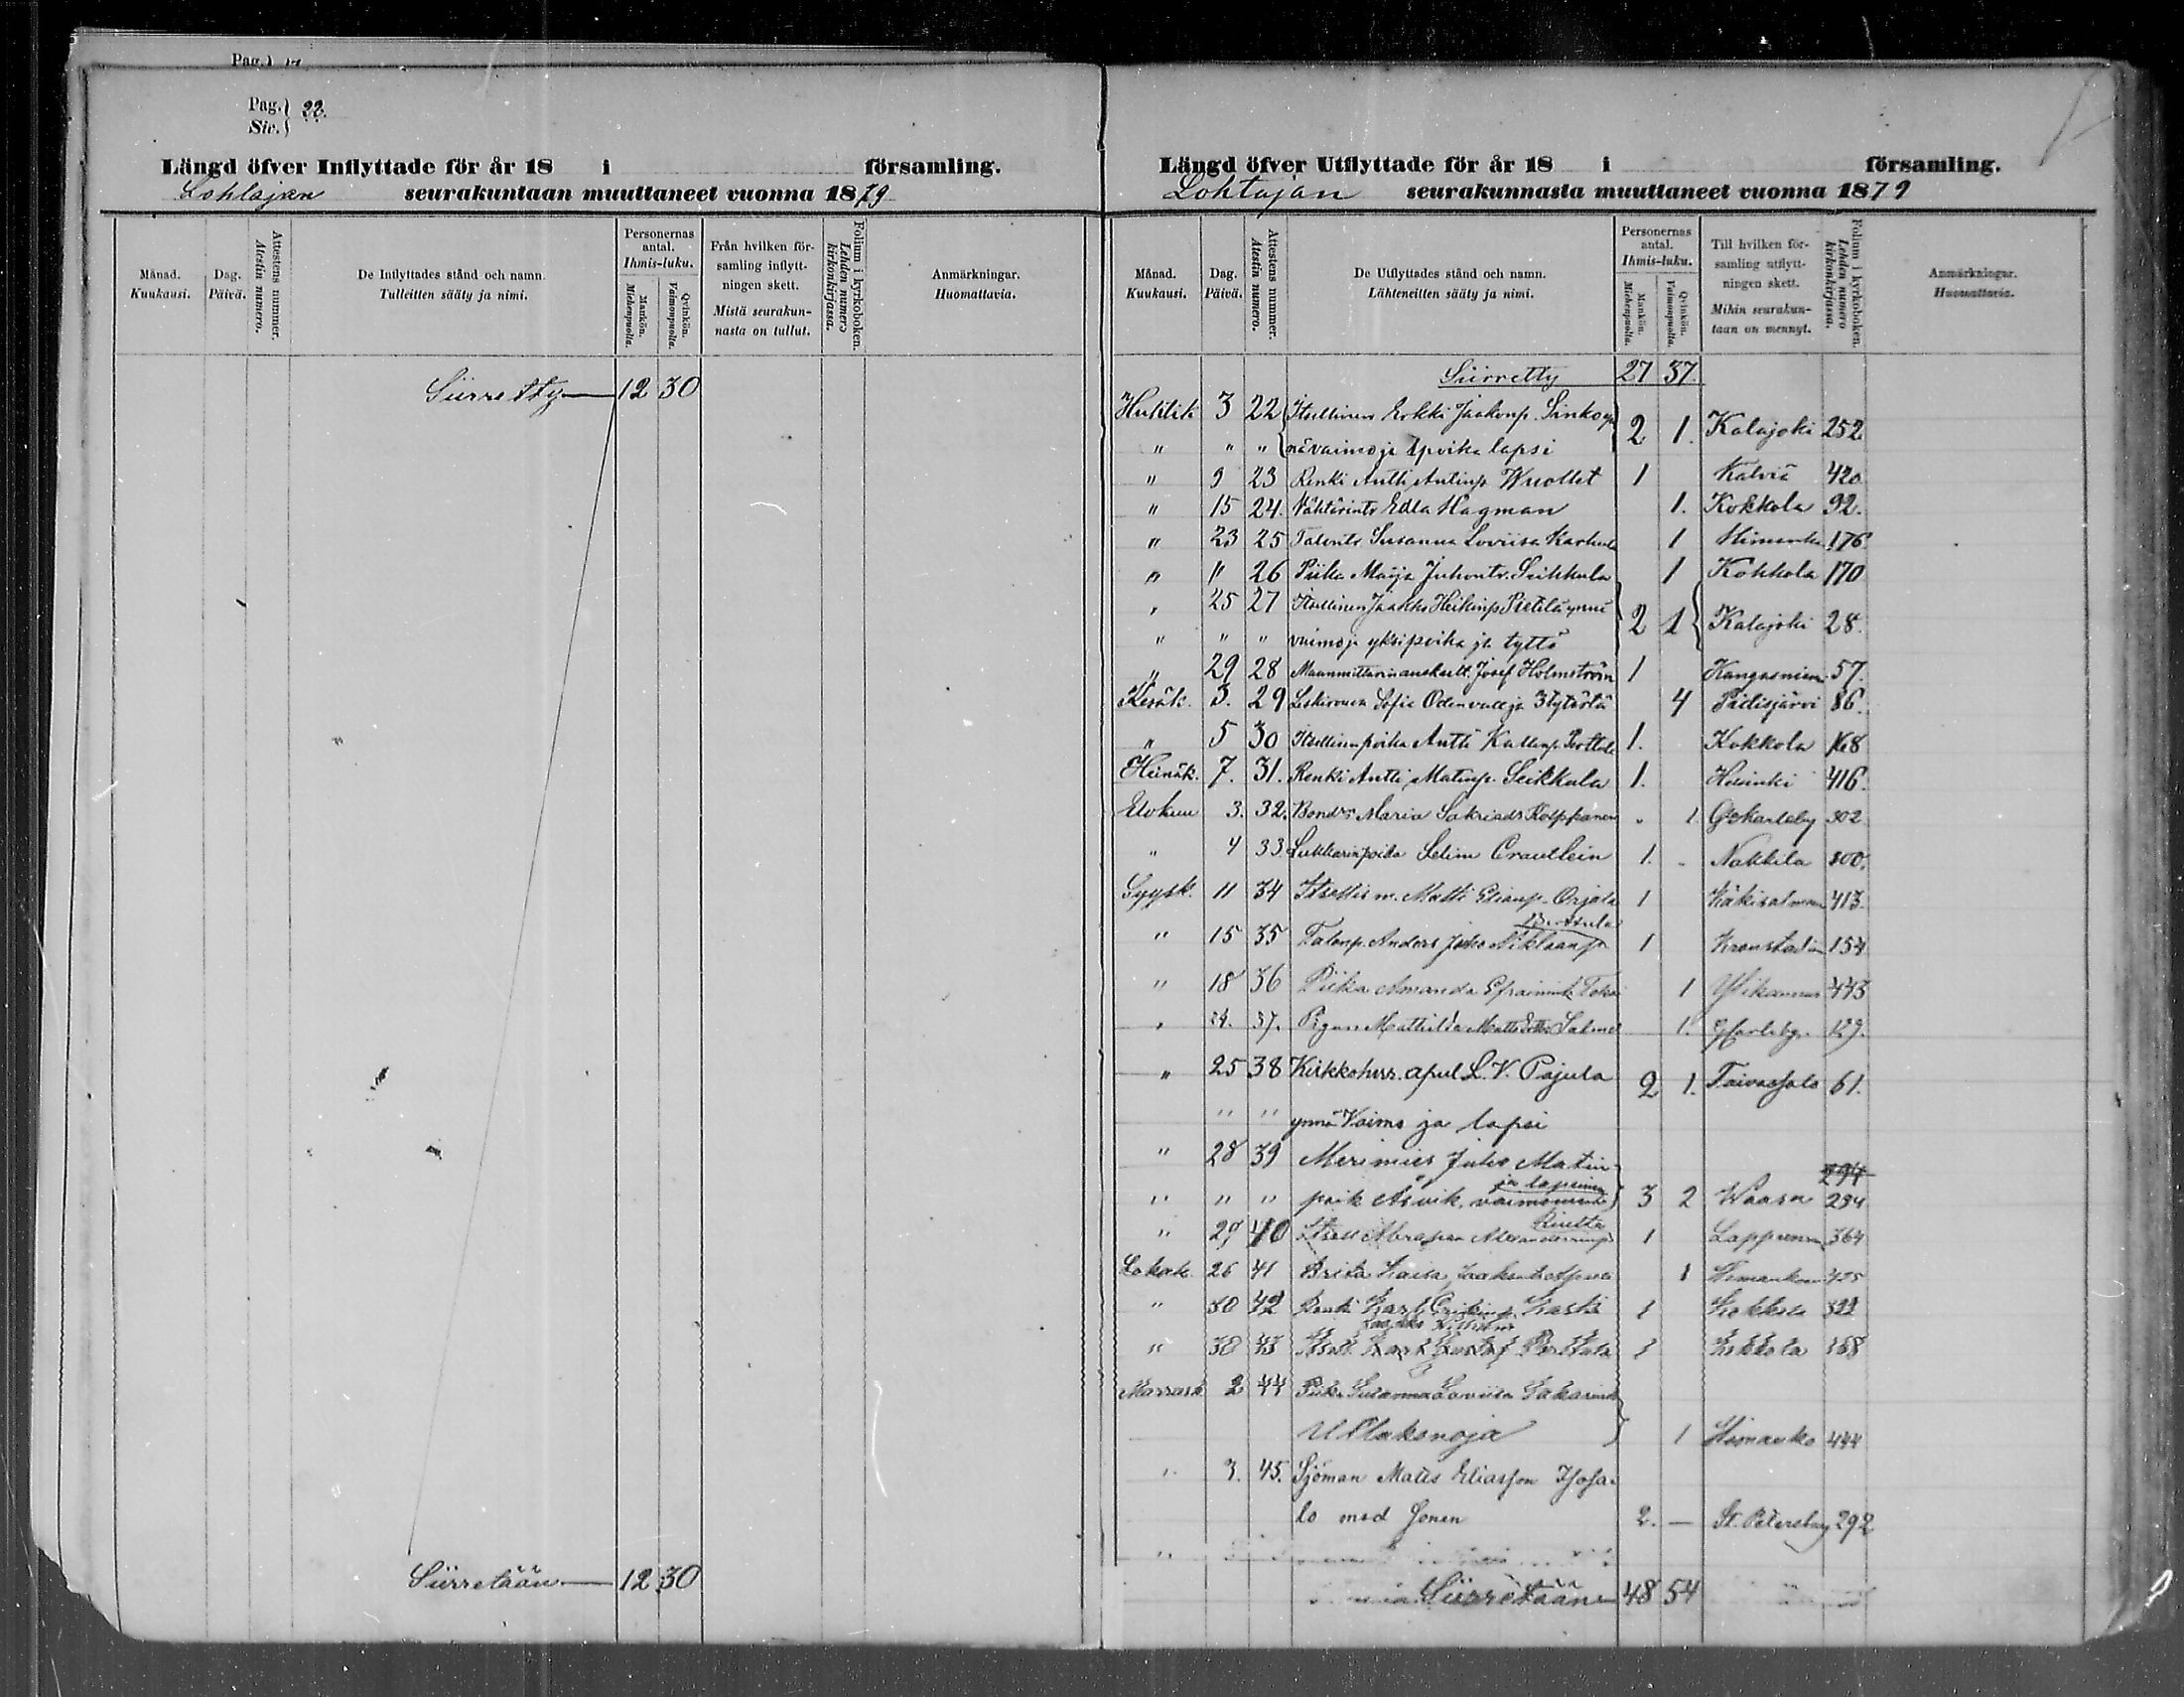 Pag.
Pag. 22.
Siv.
Längd öfver Inflyttade för år 18 i församling.
Lohtajan seurakuntaan muuttaneet vuonna 1879
Månad. Kuukausi.
Dag. Päivä.
Attestens nummer. Atestin numero.
De Inflyttades stånd och namn.
Tulleitten sääty ja nimi.
Personernas antal. Ihmis-luku.
Mankön. Miehenpuolia.
Qvinkön. Vaimonpuolia.
Från hvilken församling inflyttningen skett.
Mistä seurakunnasta on tullut.
Folium i kyrkoboken. Lehden numero kirkonkirjassa.
Anmärkningar. Huomattavia.
Siirretty 12 30
Siirretään 12 30
Längd öfver Utflyttade för år 18 i församling.
Lohtajan seurakunnasta muuttaneet vuonna 1879
Månad. Kuukausi.
Dag. Päivä.
Attestens nummer. Atestin numero.
De Utflyttades stånd och namn.
Lähteneitten sääty ja nimi.
Personernas antal. Ihmis-luku.
Mankön. Miehenpuolia.
Qvinkön. Vaimonpuolia.
Till hvilken församling utflyttningen skett.
Mihin seurakuntaan on mennyt.
Folium i kyrkoboken. Lehden numero kirkonkirjassa.
Anmärkningar. Huomattavia.
Siirretty 27 37.
Huhtik 3 22 Itsellinen Erkki Jaakonp. 2 1. Kalajoki 252
" " " vaimo ja 1 poika lapsi
" 9 23 Renki Antti Antinp. Wuollet 1 Kälviä 420
" 15 24. Edla Hagman 1. Kokkola 92.
" 23 25 Talont. Susanna Loviisa 1 Himanka 176
" " 26 Piika Maija Juhontr. Seikkula 1 Kokkola 170
" 25 27 Itsellinen Jaakko Heikinp Pietilä ynnä 2 1 Kalajoki 28.
" " " vaimo ja yksi poika ja tyttö
" 29 28 Maanmittarin auskult. Josef Holmström 1 Kangasniemi 57.
Kesäk. 3. 29 Leskirouva Sofie Odenvall ja 3 tytärtä 4 Pidisjärvi 86.
" 5 30 Itsellisenpoika Antti Kallenp. 1. Kokkola 168
Heinäk. 7. 31. Renki Antti Matinp. Seikkula 1. Helsinki 416.
Elokuu 3. 32. Bondr. Maria Sakriadr Kolppanen " 1 Gkarleby 302
" 4 33 Lukkarinpoika Selim 1. " Nakkila 300.
Syysk. 11 34 Itsellis m. Matti Elianp. Orjala 1 Käkisalmeen 413.
Perttula
" 15 35 Talonp. Anders Juho Niklaanp 1 Kronstadiin 154
" 18 36 Piika Amanda Efraimintr 1 Ylikannus 443
" 24. 37. Pigan Mathilda Mattsdotter 1. Gkarleby. 129.
" 25 38 Kirkkoherr. apul L. V. Pajula 2 1. Taivassalo 61.
" " ynnä Vaimo ja lapsi
" 28 39 Merimies Juho Matin-
294
ja lapsineen
" " " poik Åsvik, vaimoineen 3 2 Waasa 294
" 29 40 Itsell Abraham 1 364
Lokak 26 41 Brita Kaisa 1 Himankaan 425
" 30 42 Renki Karl Erikinp. 1 Kokkola 322
" 30 43 Itsell. Karl Gustaf Perttula 1 Kokkola 168
Marrask 2 44 Piika Susanna Loviisa Sakarintr
Ullaksnoja 1 Himanko 444
" 3. 45. Sjöman Matts Eliasson Isosa-
lo med sonen 2. — St. Petersburg 292
Siirretään 48 54